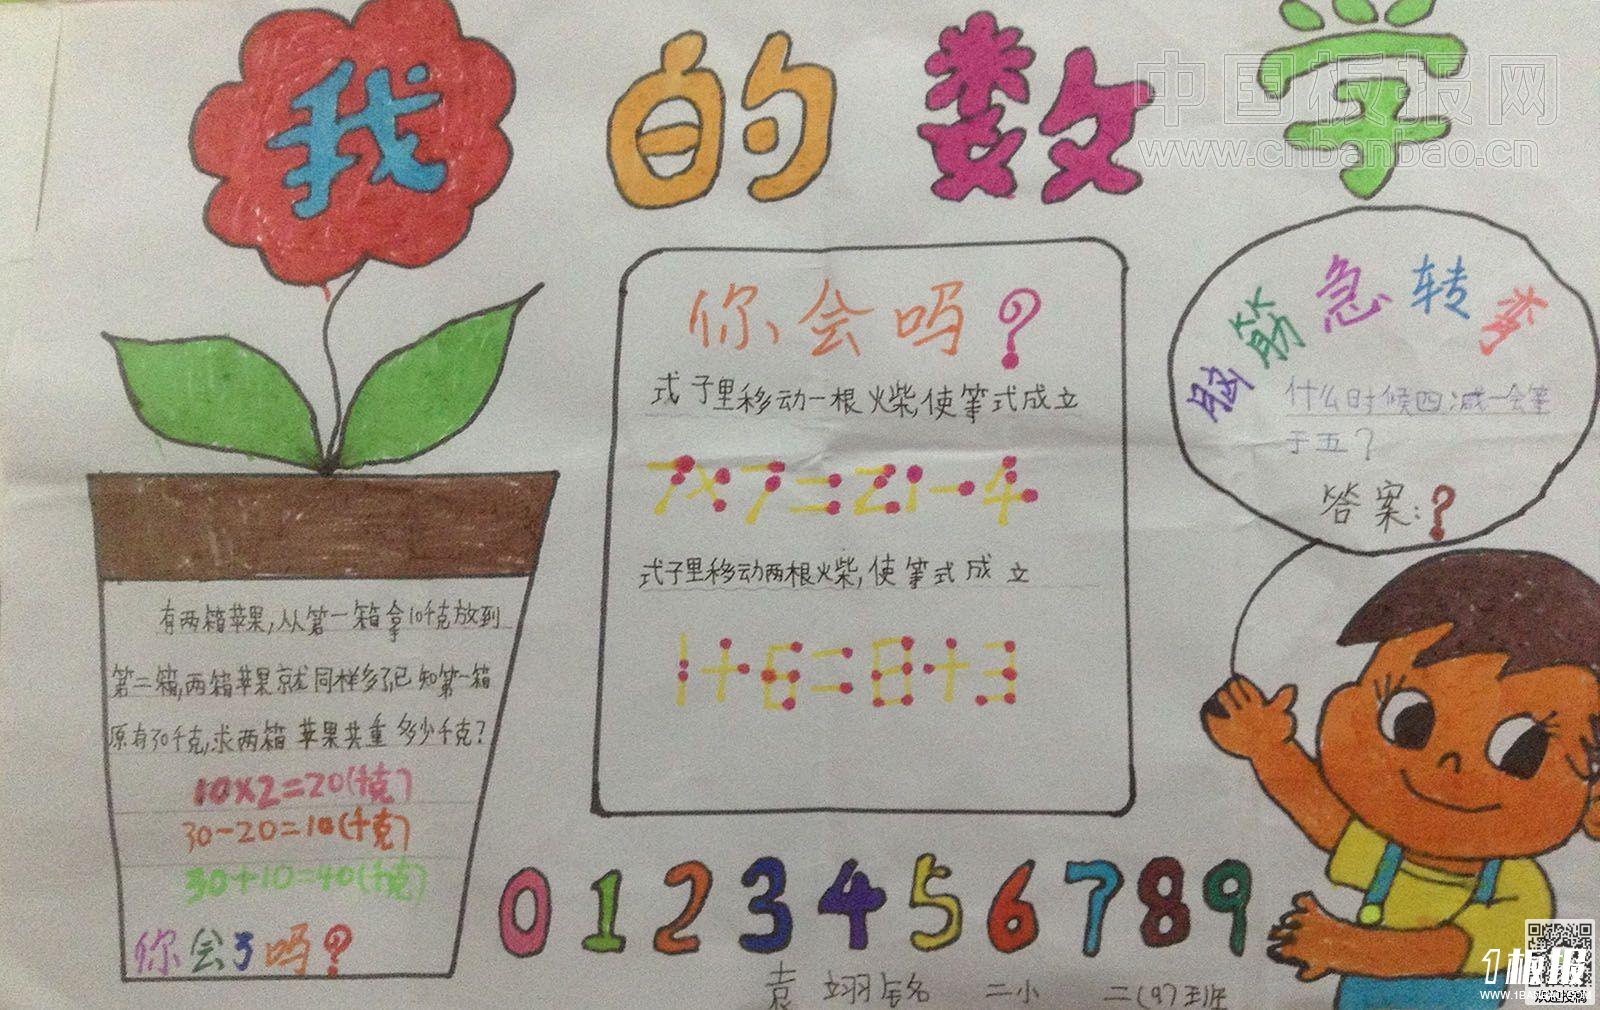 我的数学
中国板报网
www.chbanbao.cn
你会吗?
式子里移动一根火柴,使筭式成立
7×7=21-4
式子里移动两根火柴,使筭式成立
1+6=8+3
脑筋急转弯
什么时候四减一会筭
于五?
答案:?
有两箱苹果,从第一箱拿10千克放到
第二箱,两箱苹果就同样多了,已知第一箱
原有30千克,求两箱苹果共重多少千克?
10×2=20(千克)
30-20=10(千克)
30+10=40(千克)
你会了吗?
0123456789
袁翊铭 二小 二(9)班
1板报
欢迎投稿